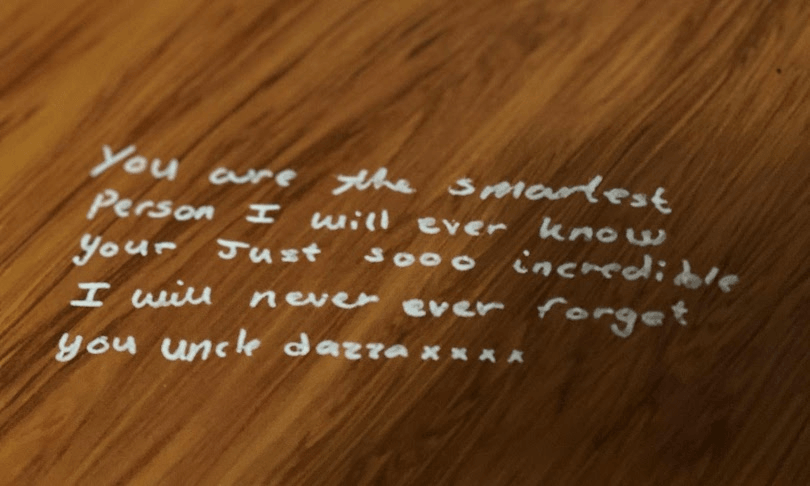 You are the smartest
Person I will ever know
your Just sooo incredible
I will never ever forget
you uncle dazza xxxx